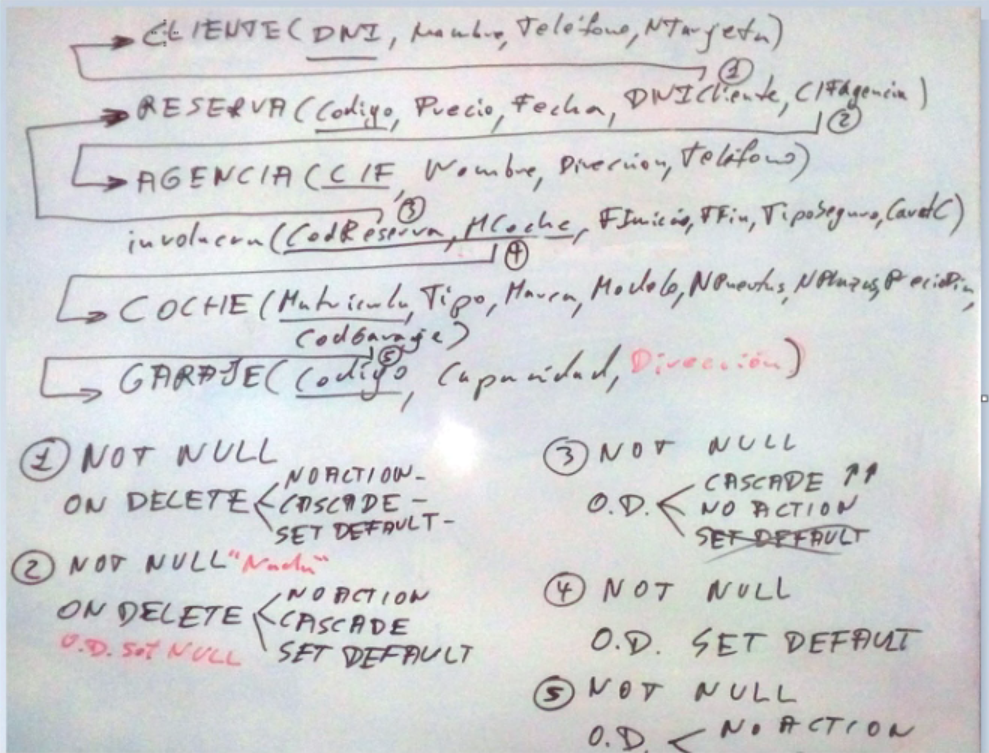 CLIENTE(DNI, Nombre, Teléfono, NTarjeta)
①
RESERVA(Codigo, Precio, Fecha, DNICliente, CIFAgencia)
②
AGENCIA(CIF, Nombre, Direccion, Teléfono)
③
involucra(CodReserva, MCoche, FInicio, FFin, TipoSeguro, CaretC)
④
COCHE(Matricula, Tipo, Marca, Modelo, NPuertas, NPlazas, PrecioDia,
CodGaraje)
⑤
GARAJE(Codigo, Capacidad, Dirección)
① NOT NULL
ON DELETE NO ACTION -
CASCADE -
SET DEFAULT -
② NOT NULL "Nada"
ON DELETE NO ACTION
CASCADE
SET DEFAULT
O.D. Set NULL
③ NOT NULL
O.D. CASCADE ↑↑
NO ACTION
SET DEFAULT
④ NOT NULL
O.D. SET DEFAUT
⑤ NOT NULL
O.D. NO ACTION